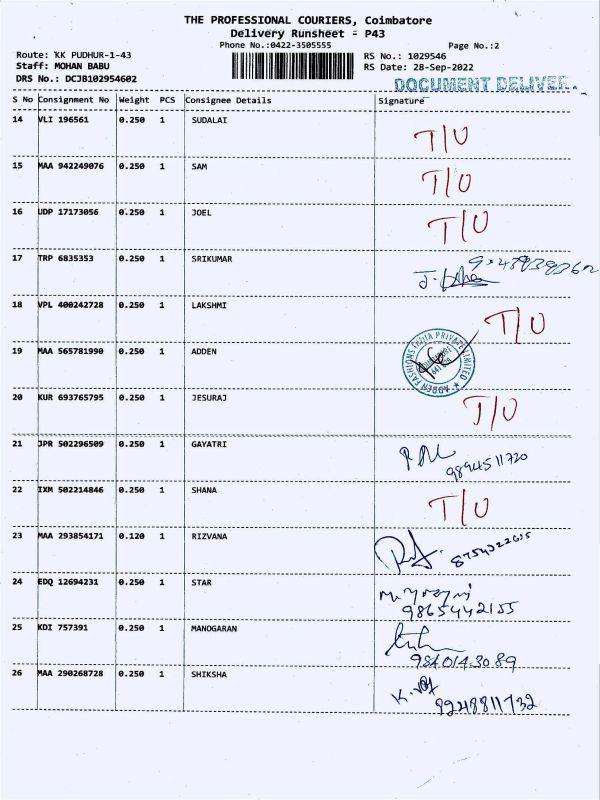 THE PROFESSIONAL COURIERS, Coimbatore
Delivery Runsheet - P43
Phone No.:0422-3505555 Page No.:2
Route: KK PUDHUR-1-43 RS No.: 1029546
Staff: MOHAN BABU RS Date: 28-Sep-2022
DRS No.: DCJB102954602
DOCUMENT DELIVER
S No Consignment No Weight PCS Consignee Details Signature
14 VLI 196561 0.250 1 SUDALAI T/U
15 MAA 942249076 0.250 1 SAM T/U
16 UDP 17173056 0.250 1 JOEL T/U
17 TRP 6835353 0.250 1 SRIKUMAR
18 VPL 400242728 0.250 1 LAKSHMI T/U
19 MAA 565781990 0.250 1 ADDEN ADDEN FASHIONS INDIA PRIVATE LIMITED
20 KUR 693765795 0.250 1 JESURAJ T/U
21 JPR 502296509 0.250 1 GAYATRI
9894511720
22 IXM 502214846 0.250 1 SHANA T/U
23 MAA 293854171 0.120 1 RIZVANA
24 EDQ 12694231 0.250 1 STAR
9865442155
25 KDI 757391 0.250 1 MANOGARAN
9840143089
26 MAA 290268728 0.250 1 SHIKSHA
9248811732